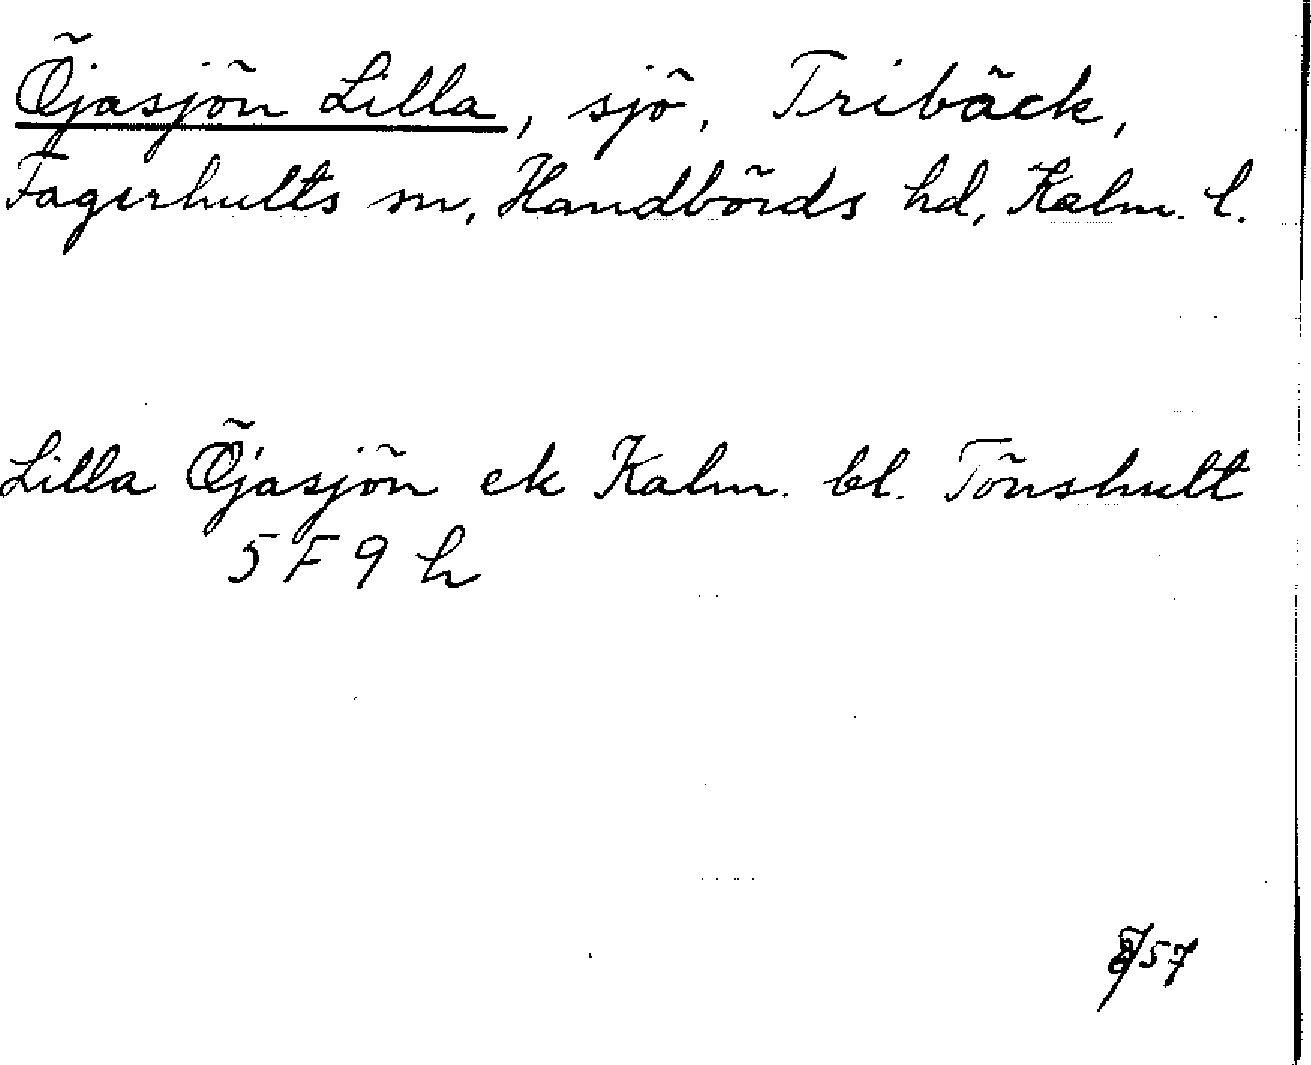 Öjasjön Lilla, sjö, Tribäck,
Fagerhults sn, Handbörds hd, Kalm. l.
Lilla Öjasjön ek Kalm. bl. Tönshult
5 F 9 h
57